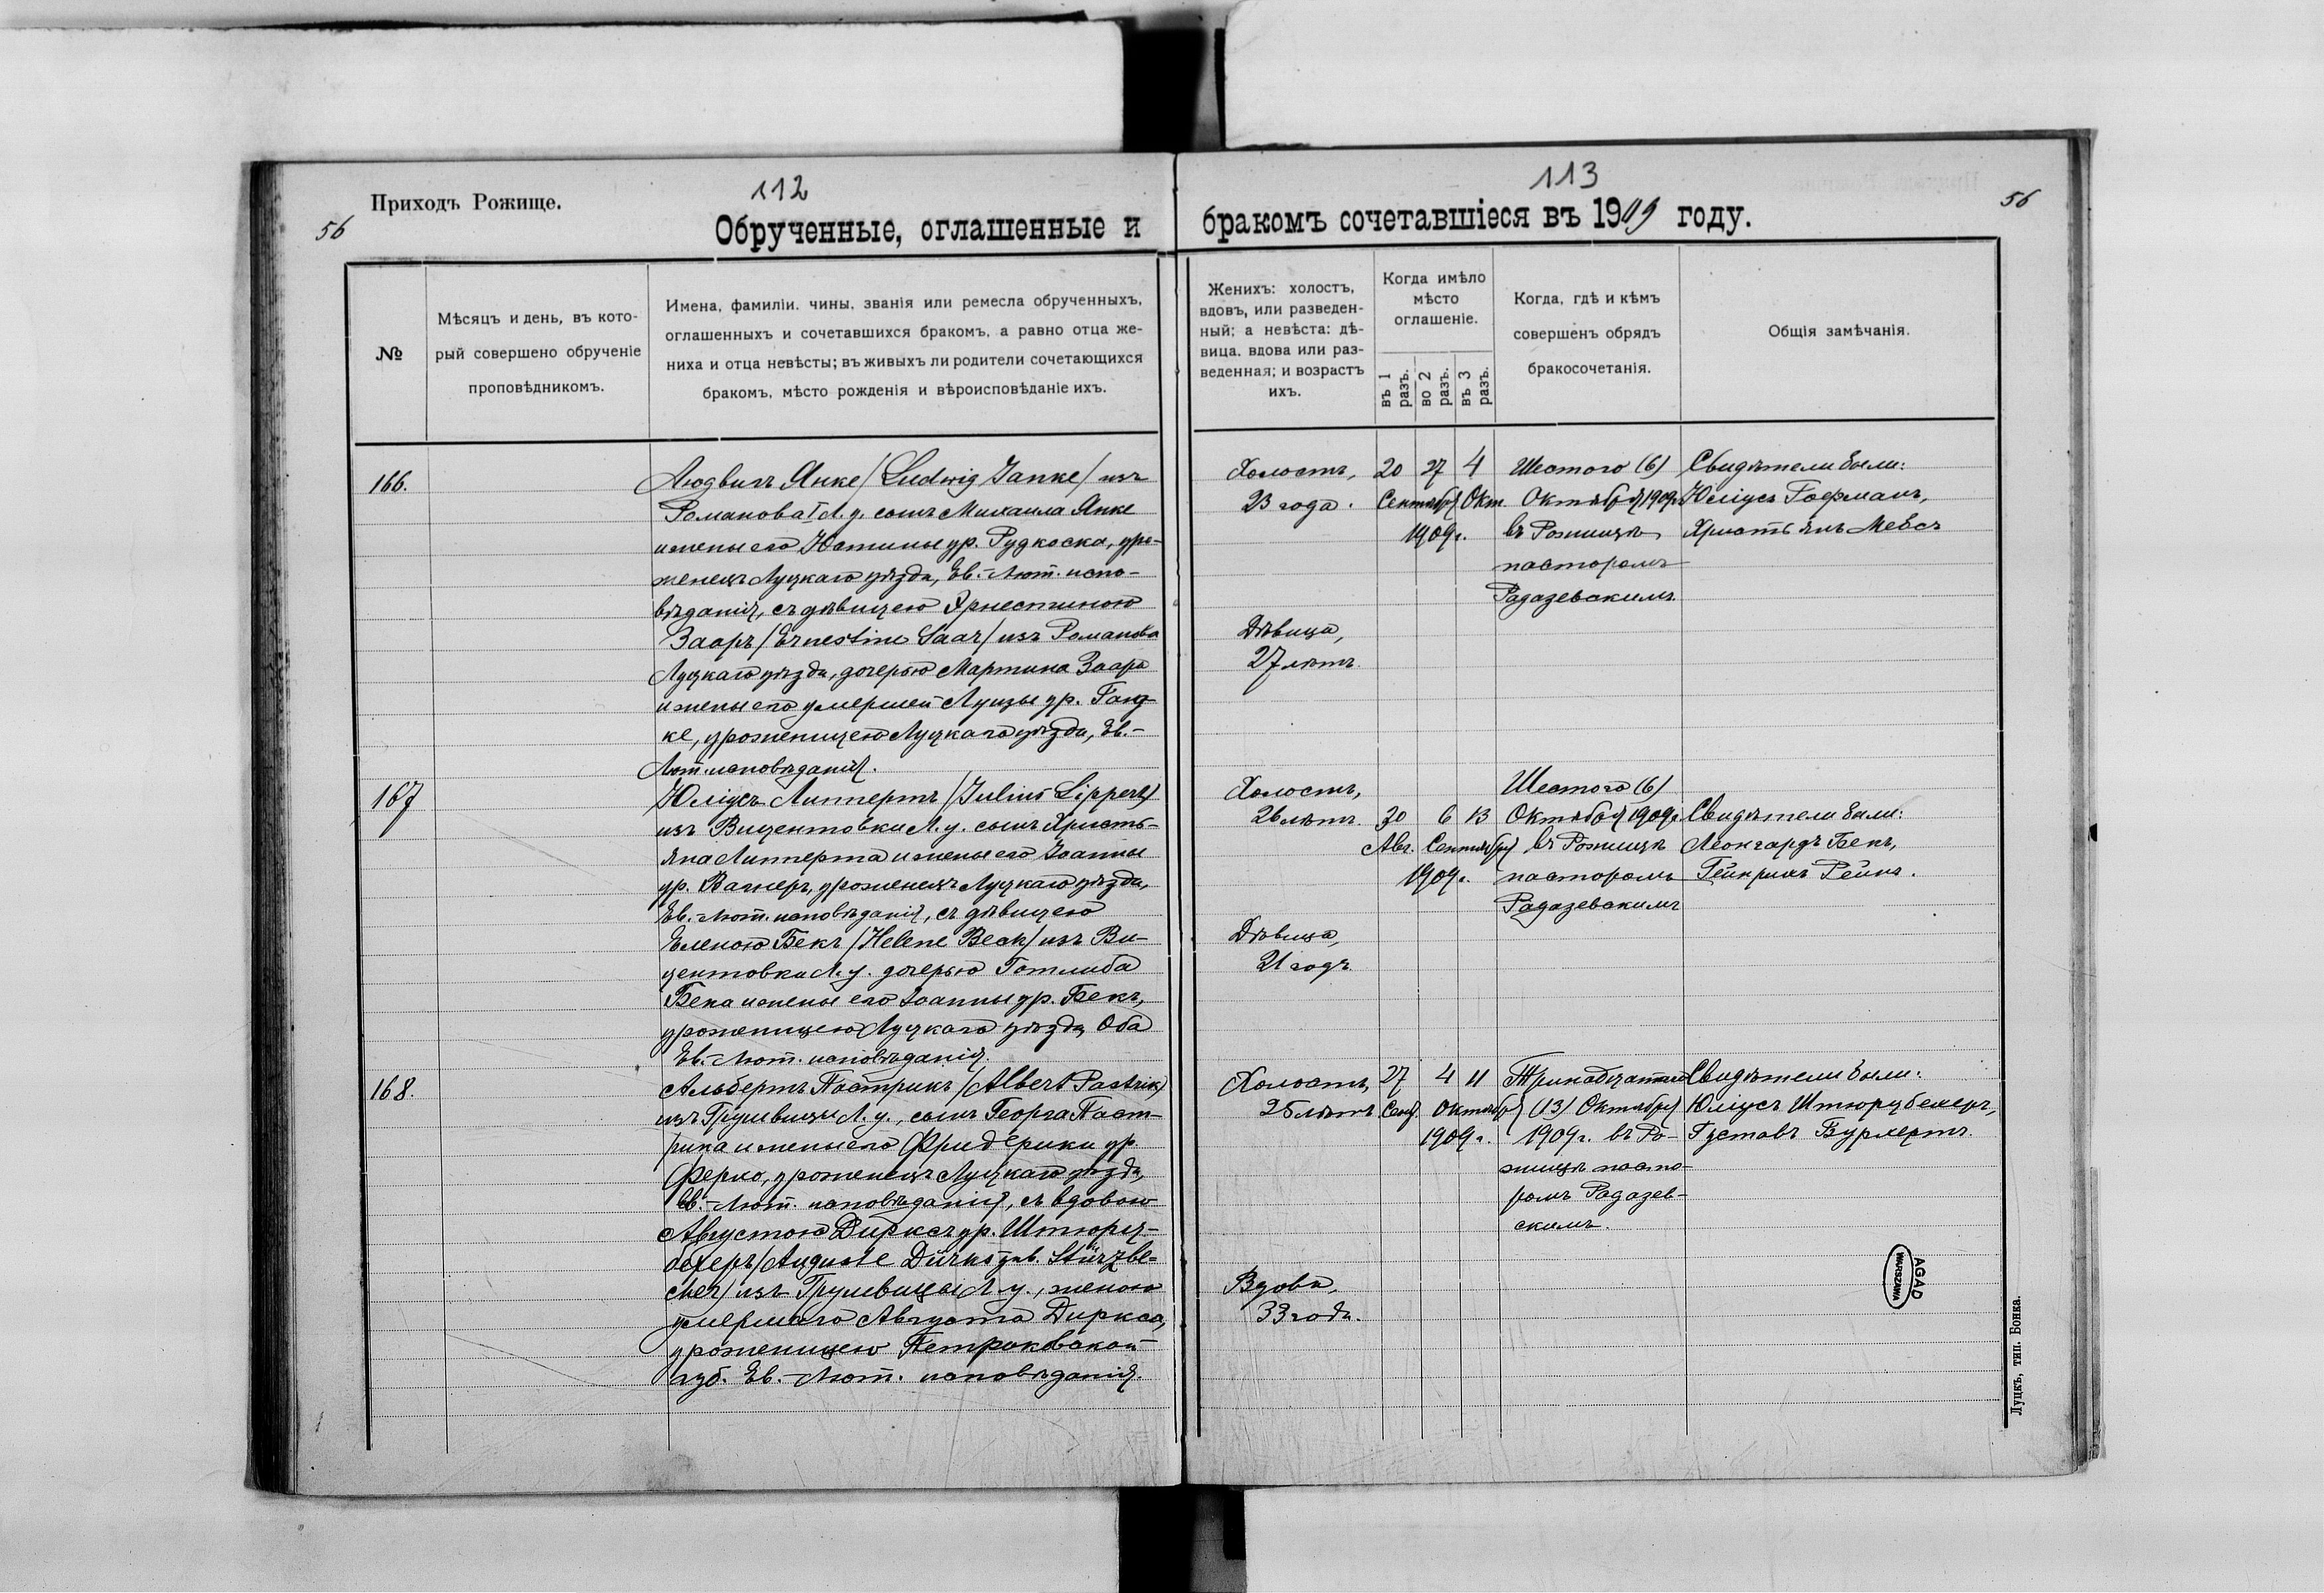 112
Приходъ Рожище.
56
Обрученные, оглашенные и
№
Мѣсяцъ и день, въ кото-
рый совершено обрученіе
проповѣдникомъ.
Имена, фамиліи, чины, званія или ремесла обрученныхъ,
оглашенныхъ и сочетавшихся бракомъ, а равно отца же-
ниха и отца невѣсты; въ живыхъ ли родители сочетающихся
бракомъ, мѣсто рожденія и вѣроисповѣданіе ихъ.
166.
Людвигъ Янке /Ludwig Janke/ изъ
Романова I Л. у. сынъ Михаила Янке
и жены его Юстины ур. Рудкоска, уро-
женецъ Луцкаго уѣзда, Ев.-Лют. испо-
вѣданія, съ дѣвицею Эрнестиною
Зааръ /Ernestine Saar/ изъ Романова
Луцкаго уѣзда, дочерью Мартина Заара
и жены его умершей Луизы ур.
ке, уроженицею Луцкаго уѣзда, Ев.-
Лют. исповѣданія.
167
Юліусъ Липпертъ /Julius Lippert/
изъ Вицентовки Л. у. сынъ Христь-
яна Липперта и жены его Іоанны
ур. Вагнеръ, уроженецъ Луцкаго уѣзда,
Ев.-Лют. исповѣданія, съ дѣвицею
Еленою Бекъ /Helene Beck/ изъ Ви-
центовки Л. у. дочерью Готлиба
Бека и жены его Іоанны ур. Бекъ,
уроженицею Луцкаго уѣзда, Оба
Ев.-Лют. исповѣданія.
168.
Альбертъ Пастрикъ /Albert Pastrik/
изъ Грушвицы Л. у., сынъ Георга Паст-
рика и жены его Фридерики ур.
уроженецъ Луцкаго уѣзда,
Ев.-Лют. исповѣданія, съ вдовою
Августою Дирксъ ур. Штюрц-
бехеръ /Auguste Dirks geb. Stürzbe-
cher/ изъ Грушвицы Л. у., женою
умершаго Августа Диркса,
уроженицею Петроковской
губ. Ев.-Лют. исповѣданія.
113
56
бракомъ сочетавшіеся въ 1909 году.
Женихъ: холостъ,
вдовъ, или разведен-
ный; а невѣста: дѣ-
вица, вдова или раз-
веденная; и возрастъ
ихъ.
Когда имѣло
мѣсто
оглашеніе.
въ 1 разъ.
во 2 разъ.
въ 3 разъ.
Когда, гдѣ и кѣмъ
совершенъ обрядъ
бракосочетанія.
Общія замѣчанія.
Холостъ, 20 27 4 Шестого (6) Свидѣтели были:
23 года. Сентября Окт. Октября 1909г. Юліусъ Гофманъ,
1909г. въ Рожищѣ Христьянъ Мебсъ
пасторомъ
Радазевскимъ.
Дѣвица,
27 лѣтъ.
Холостъ, Шестого (6)
26 лѣтъ. 30 6 13 Октября 1909г. Свидѣтели были:
Авг. Сентября въ Рожищѣ Леонгардъ Бекъ,
1909г. пасторомъ Гейнрихъ Рейнъ.
Радазевскимъ
Дѣвица,
21 годъ.
Холостъ, 27 4 11 Тринадцатаго Свидѣтели были:
25 лѣтъ Сент. Октября (13) Октября Юліусъ Штюрцбехеръ,
1909г. 1909г. въ Ро- Густавъ Бурлертъ.
жищѣ пасто-
ромъ Радазев-
скимъ.
Вдова,
33 года.
AGAD
WARSZAWA
Луцкъ, тип. Бонка.